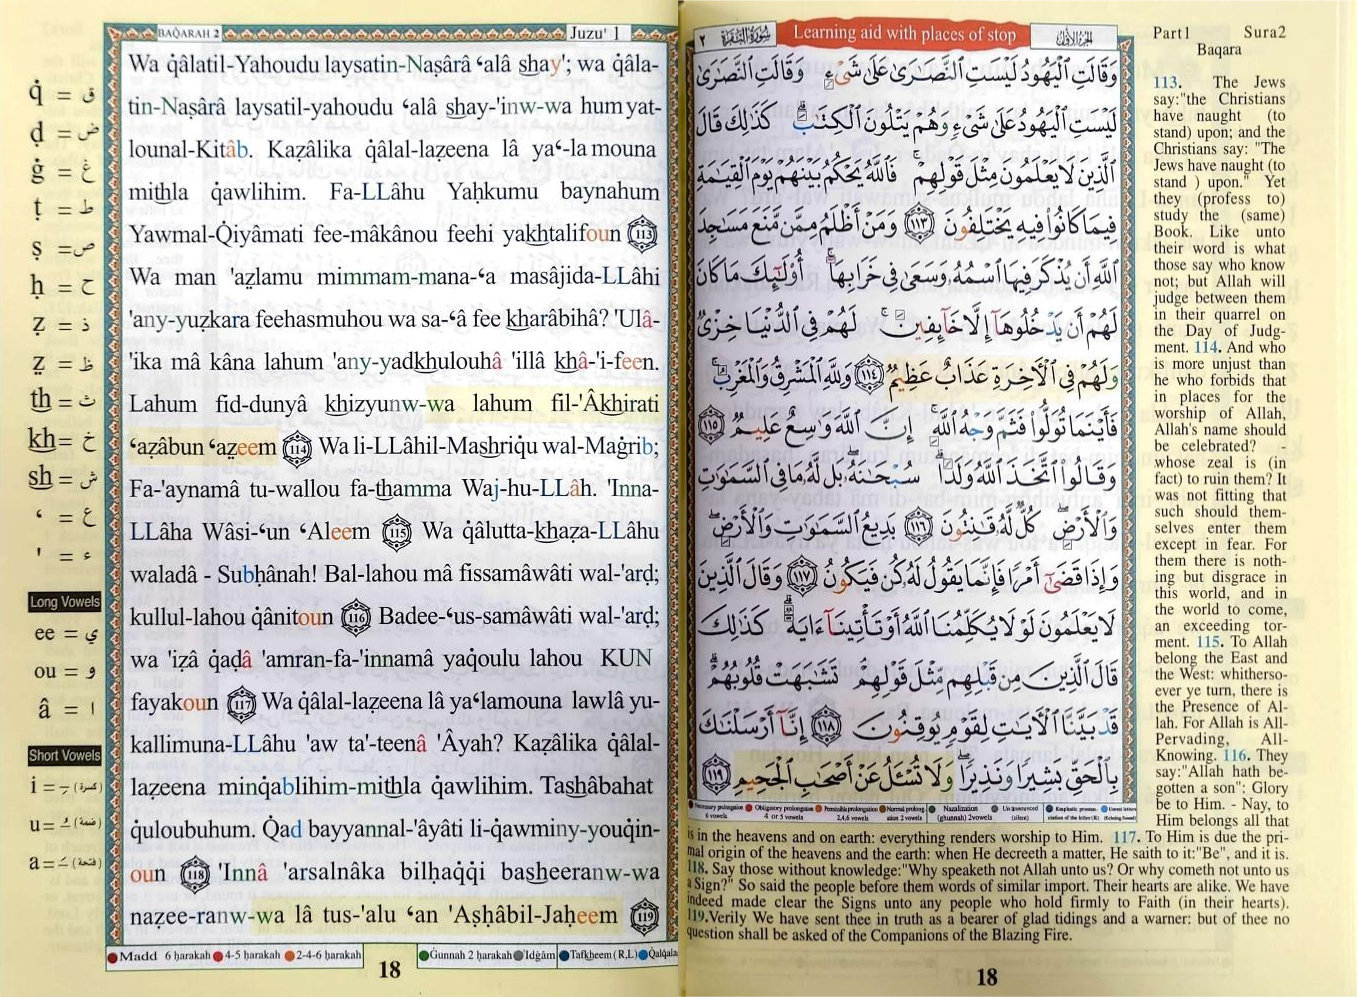 BAQARAH 2
Juzu' 1
q̇ = ق
ḍ = ض
ġ = غ
ṭ = ط
ṣ = ص
ḥ = ح
Z̤ = ذ
ẓ = ظ
th = ث
kh = خ
sh = ش
ʻ = ع
' = ء
Long Vowels
ee = ي
ou = و
â = ا
Short Vowels
i = (كسرة)
u = (ضمة)
a = (فتحة)
Wa q̇âlatil-Yahoudu laysatin-Naṣârâ ʻalâ shay'; wa q̇âla-
tin-Naṣârâ laysatil-yahoudu ʻalâ shay-'inw-wa hum yat-
lounal-Kitâb. Kaz̤âlika q̇âlal-laz̤eena lâ yaʻ-la mouna
mithla q̇awlihim. Fa-LLâhu Yaḥkumu baynahum
Yawmal-Q̇iyâmati fee-mâkânou feehi yakhtalifoun 113
Wa man 'aẓlamu mimmam-mana-ʻa masâjida-LLâhi
'any-yuz̤kara feehasmuhou wa sa-ʻâ fee kharâbihâ? 'Ulâ-
'ika mâ kâna lahum 'any-yadkhulouhâ 'illâ khâ-'i-feen.
Lahum fid-dunyâ khizyunw-wa lahum fil-'Âkhirati
ʻaz̤âbun ʻaẓeem 114 Wa li-LLâhil-Mashriq̇u wal-Maġrib;
Fa-'aynamâ tu-wallou fa-thamma Waj-hu-LLâh. 'Inna-
LLâha Wâsi-ʻun ʻAleem 115 Wa q̇âlutta-khaz̤a-LLâhu
waladâ - Subḥânah! Bal-lahou mâ fissamâwâti wal-'arḍ;
kullul-lahou q̇ânitoun 116 Badee-ʻus-samâwâti wal-'arḍ;
wa 'iz̤â q̇aḍâ 'amran-fa-'innamâ yaq̇oulu lahou KUN
fayakoun 117 Wa q̇âlal-laz̤eena lâ yaʻlamouna lawlâ yu-
kallimuna-LLâhu 'aw ta'-teenâ 'Âyah? Kaz̤âlika q̇âlal-
laz̤eena minq̇ablihim-mithla q̇awlihim. Tashâbahat
q̇uloubuhum. Q̇ad bayyannal-'âyâti li-q̇awminy-youq̇in-
oun 118 'Innâ 'arsalnâka bilḥaq̇q̇i basheeranw-wa
naz̤ee-ranw-wa lâ tus-'alu ʻan 'Aṣḥâbil-Jaḥeem 119
Madd 6 ḥarakah 4-5 ḥarakah 2-4-6 ḥarakah Ġunnah 2 ḥarakah 'Idġâm Tafkheem (R,L) Q̇alq̇ala
18
٢ سُورَةُ البَقَرَة
Learning aid with places of stop
الجزء الأول
وَقَالَتِ ٱلۡيَهُودُ لَيۡسَتِ ٱلنَّصَـٰرَىٰ عَلَىٰ شَىۡءٍ وَقَالَتِ ٱلنَّصَـٰرَىٰ
لَيۡسَتِ ٱلۡيَهُودُ عَلَىٰ شَىۡءٍ وَهُمۡ يَتۡلُونَ ٱلۡكِتَـٰبَۗ كَذَٰلِكَ قَالَ
ٱلَّذِينَ لَا يَعۡلَمُونَ مِثۡلَ قَوۡلِهِمۡۚ فَٱللَّهُ يَحۡكُمُ بَيۡنَهُمۡ يَوۡمَ ٱلۡقِيَـٰمَةِ
فِيمَا كَانُوا۟ فِيهِ يَخۡتَلِفُونَ ١١٣ وَمَنۡ أَظۡلَمُ مِمَّن مَّنَعَ مَسَـٰجِدَ
ٱللَّهِ أَن يُذۡكَرَ فِيهَا ٱسۡمُهُۥ وَسَعَىٰ فِى خَرَابِهَآۚ أُو۟لَـٰٓئِكَ مَا كَانَ
لَهُمۡ أَن يَدۡخُلُوهَآ إِلَّا خَآئِفِينَۚ لَهُمۡ فِى ٱلدُّنۡيَا خِزۡىٌ
وَلَهُمۡ فِى ٱلۡأَخِرَةِ عَذَابٌ عَظِيمٌ ١١٤ وَلِلَّهِ ٱلۡمَشۡرِقُ وَٱلۡمَغۡرِبُۚ
فَأَيۡنَمَا تُوَلُّوا۟ فَثَمَّ وَجۡهُ ٱللَّهِۚ إِنَّ ٱللَّهَ وَٰسِعٌ عَلِيمٌ ١١٥
وَقَالُوا۟ ٱتَّخَذَ ٱللَّهُ وَلَدًاۗ سُبۡحَـٰنَهُۥۖ بَل لَّهُۥ مَا فِى ٱلسَّمَـٰوَٰتِ
وَٱلۡأَرۡضِۖ كُلٌّ لَّهُۥ قَـٰنِتُونَ ١١٦ بَدِيعُ ٱلسَّمَـٰوَٰتِ وَٱلۡأَرۡضِۖ
وَإِذَا قَضَىٰٓ أَمۡرًا فَإِنَّمَا يَقُولُ لَهُۥ كُن فَيَكُونُ ١١٧ وَقَالَ ٱلَّذِينَ
لَا يَعۡلَمُونَ لَوۡلَا يُكَلِّمُنَا ٱللَّهُ أَوۡ تَأۡتِينَآ ءَايَةٌۗ كَذَٰلِكَ
قَالَ ٱلَّذِينَ مِن قَبۡلِهِم مِّثۡلَ قَوۡلِهِمۡۘ تَشَـٰبَهَتۡ قُلُوبُهُمۡۗ
قَدۡ بَيَّنَّا ٱلۡأَيَـٰتِ لِقَوۡمٍ يُوقِنُونَ ١١٨ إِنَّآ أَرۡسَلۡنَـٰكَ
بِٱلۡحَقِّ بَشِيرًا وَنَذِيرًاۖ وَلَا تُسۡـَٔلُ عَنۡ أَصۡحَـٰبِ ٱلۡجَحِيمِ ١١٩
Necessary prolongation 6 vowels Obligatory prolongation 4 or 5 vowels Permissible prolongation 2,4,6 vowels Normal prolongation 2 vowels Nazalization (ghunnah) 2 vowels Un announced (silent) Emphatic pronunciation of the letter (R) Unrest letters (Echoing Sound)
Part1 Sura2
Baqara
113. The Jews
say:"the Christians
have naught (to
stand) upon; and the
Christians say: "The
Jews have naught (to
stand ) upon." Yet
they (profess to)
study the (same)
Book. Like unto
their word is what
those say who know
not; but Allah will
judge between them
in their quarrel on
the Day of Judg-
ment. 114. And who
is more unjust than
he who forbids that
in places for the
worship of Allah,
Allah's name should
be celebrated? -
whose zeal is (in
fact) to ruin them? It
was not fitting that
such should them-
selves enter them
except in fear. For
them there is noth-
ing but disgrace in
this world, and in
the world to come,
an exceeding tor-
ment. 115. To Allah
belong the East and
the West: whitherso-
ever ye turn, there is
the Presence of Al-
lah. For Allah is All-
Pervading, All-
Knowing. 116. They
say:"Allah hath be-
gotten a son": Glory
be to Him. - Nay, to
Him belongs all that
is in the heavens and on earth: everything renders worship to Him. 117. To Him is due the pri-
mal origin of the heavens and the earth: when He decreeth a matter, He saith to it:"Be", and it is.
118. Say those without knowledge:"Why speaketh not Allah unto us? Or why cometh not unto us
a Sign?" So said the people before them words of similar import. Their hearts are alike. We have
indeed made clear the Signs unto any people who hold firmly to Faith (in their hearts).
119.Verily We have sent thee in truth as a bearer of glad tidings and a warner: but of thee no
question shall be asked of the Companions of the Blazing Fire.
18